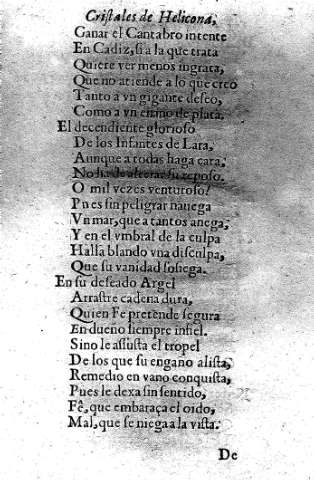 Cristales de Helicona,
Ganar el Cantabro intente
En Cadiz, si a la que trata
Quiere ver menos ingrata,
Que no atiende a lo que creo
Tanto a vn gigante deseo,
Como a vn enano de plata.
El decendiente glorioso
De los Infantes de Lara,
Aunque a todas haga cara,
No ha de alterar su reposo.
O mil vezes venturoso!
Pues sin peligrar nauega
Vn mar, que a tantos anega,
Y en el vmbral de la culpa
Halla blando vna disculpa,
Que su vanidad sosiega.
En su deseado Argel
Arrastre cadena dura,
Quien Fe pretende segura
En dueño siempre infiel.
Sino le assusta el tropel
De los que su engaño alista,
Remedio en vano conquista,
Pues le dexa sin sentido,
Fê, que embaraça el oido,
Mal, que se niega a la vista.
De